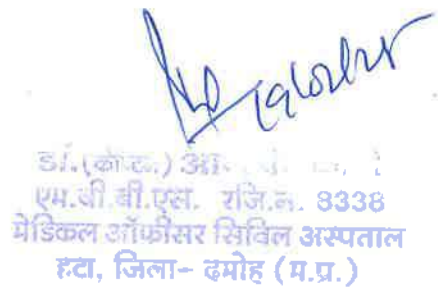 डॉ.(
एम.बी.बी.एस. रजि.नं. 8338
मेडिकल ऑफीसर सिविल अस्पताल
हटा, जिला- दमोह (म.प्र.)